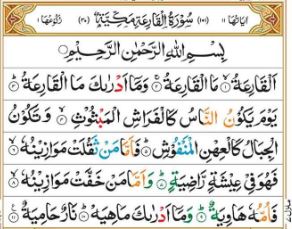 اٰیَاتُهَا ١١ (١٠١) سُوْرَةُ الْقَارِعَةِ مَكِّیَّةٌ (٣٠) رُكُوْعُهَا ١
بِسْمِ اللّٰهِ الرَّحْمٰنِ الرَّحِیْمِ
اَلْقَارِعَةُ ۙ۝١ مَا الْقَارِعَةُ ۚ۝٢ وَمَاۤ اَدْرٰىكَ مَا الْقَارِعَةُ ؕ۝٣
یَوْمَ یَكُوْنُ النَّاسُ كَالْفَرَاشِ الْمَبْثُوْثِ ۙ۝٤ وَتَكُوْنُ
الْجِبَالُ كَالْعِهْنِ الْمَنْفُوْشِ ؕ۝٥ فَاَمَّا مَنْ ثَقُلَتْ مَوَازِیْنُهٗ ۙ۝٦
فَهُوَ فِیْ عِیْشَةٍ رَّاضِیَةٍ ؕ۝٧ وَاَمَّا مَنْ خَفَّتْ مَوَازِیْنُهٗ ۙ۝٨
فَاُمُّهٗ هَاوِیَةٌ ؕ۝٩ وَمَاۤ اَدْرٰىكَ مَا هِیَهْ ؕ۝١٠ نَارٌ حَامِیَةٌ ۝١١